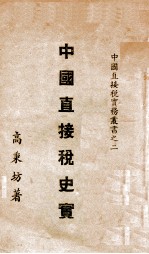 中國直接稅實務叢書之二
中國直接稅史實
高秉坊著